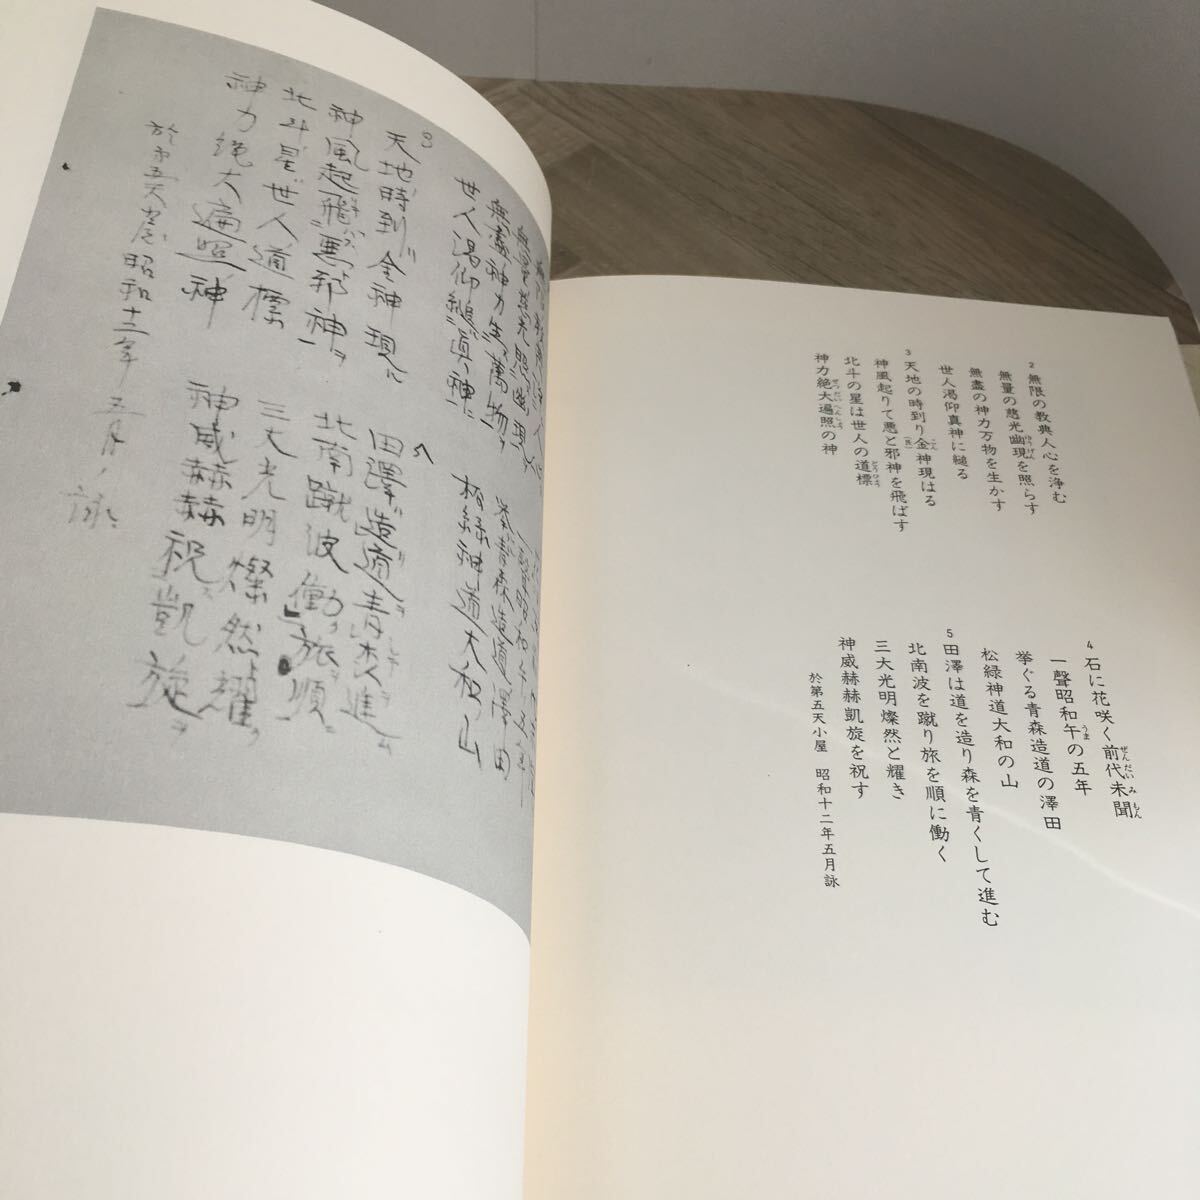 無量慈光照幽現ヲ
無盡神力生萬物ヲ
世人渇仰縋真神ニ
3
天地時到金神現ニ
神風起飛悪邪神ヲ
北斗星世人道標
神力絶大遍照神
奉青森造道澤田
松緑神道大和山
5
田澤造道青森進ム
北南蹴波働旅順ニ
三大光明燦然耀ク
神威赫赫祝凱旋ヲ
於第五天小屋昭和十二年五月詠
2 無限の教典人心を浄む
無量の慈光幽現を照らす
ゆうげん
無盡の神力万物を生かす
世人渇仰真神に縋る
3 天地の時到り金神現はる
こん
神風起りて悪と邪神を飛ばす
北斗の星は世人の道標
どうひょう
神力絶大遍照の神
ぜつだいへんしょう
4 石に花咲く前代未聞
ぜんだいみもん
一聲昭和午の五年
うま
挙ぐる青森造道の澤田
松緑神道大和の山
5 田澤は道を造り森を青くして進む
北南波を蹴り旅を順に働く
三大光明燦然と耀き
神威赫赫凱旋を祝す
於第五天小屋 昭和十二年五月詠